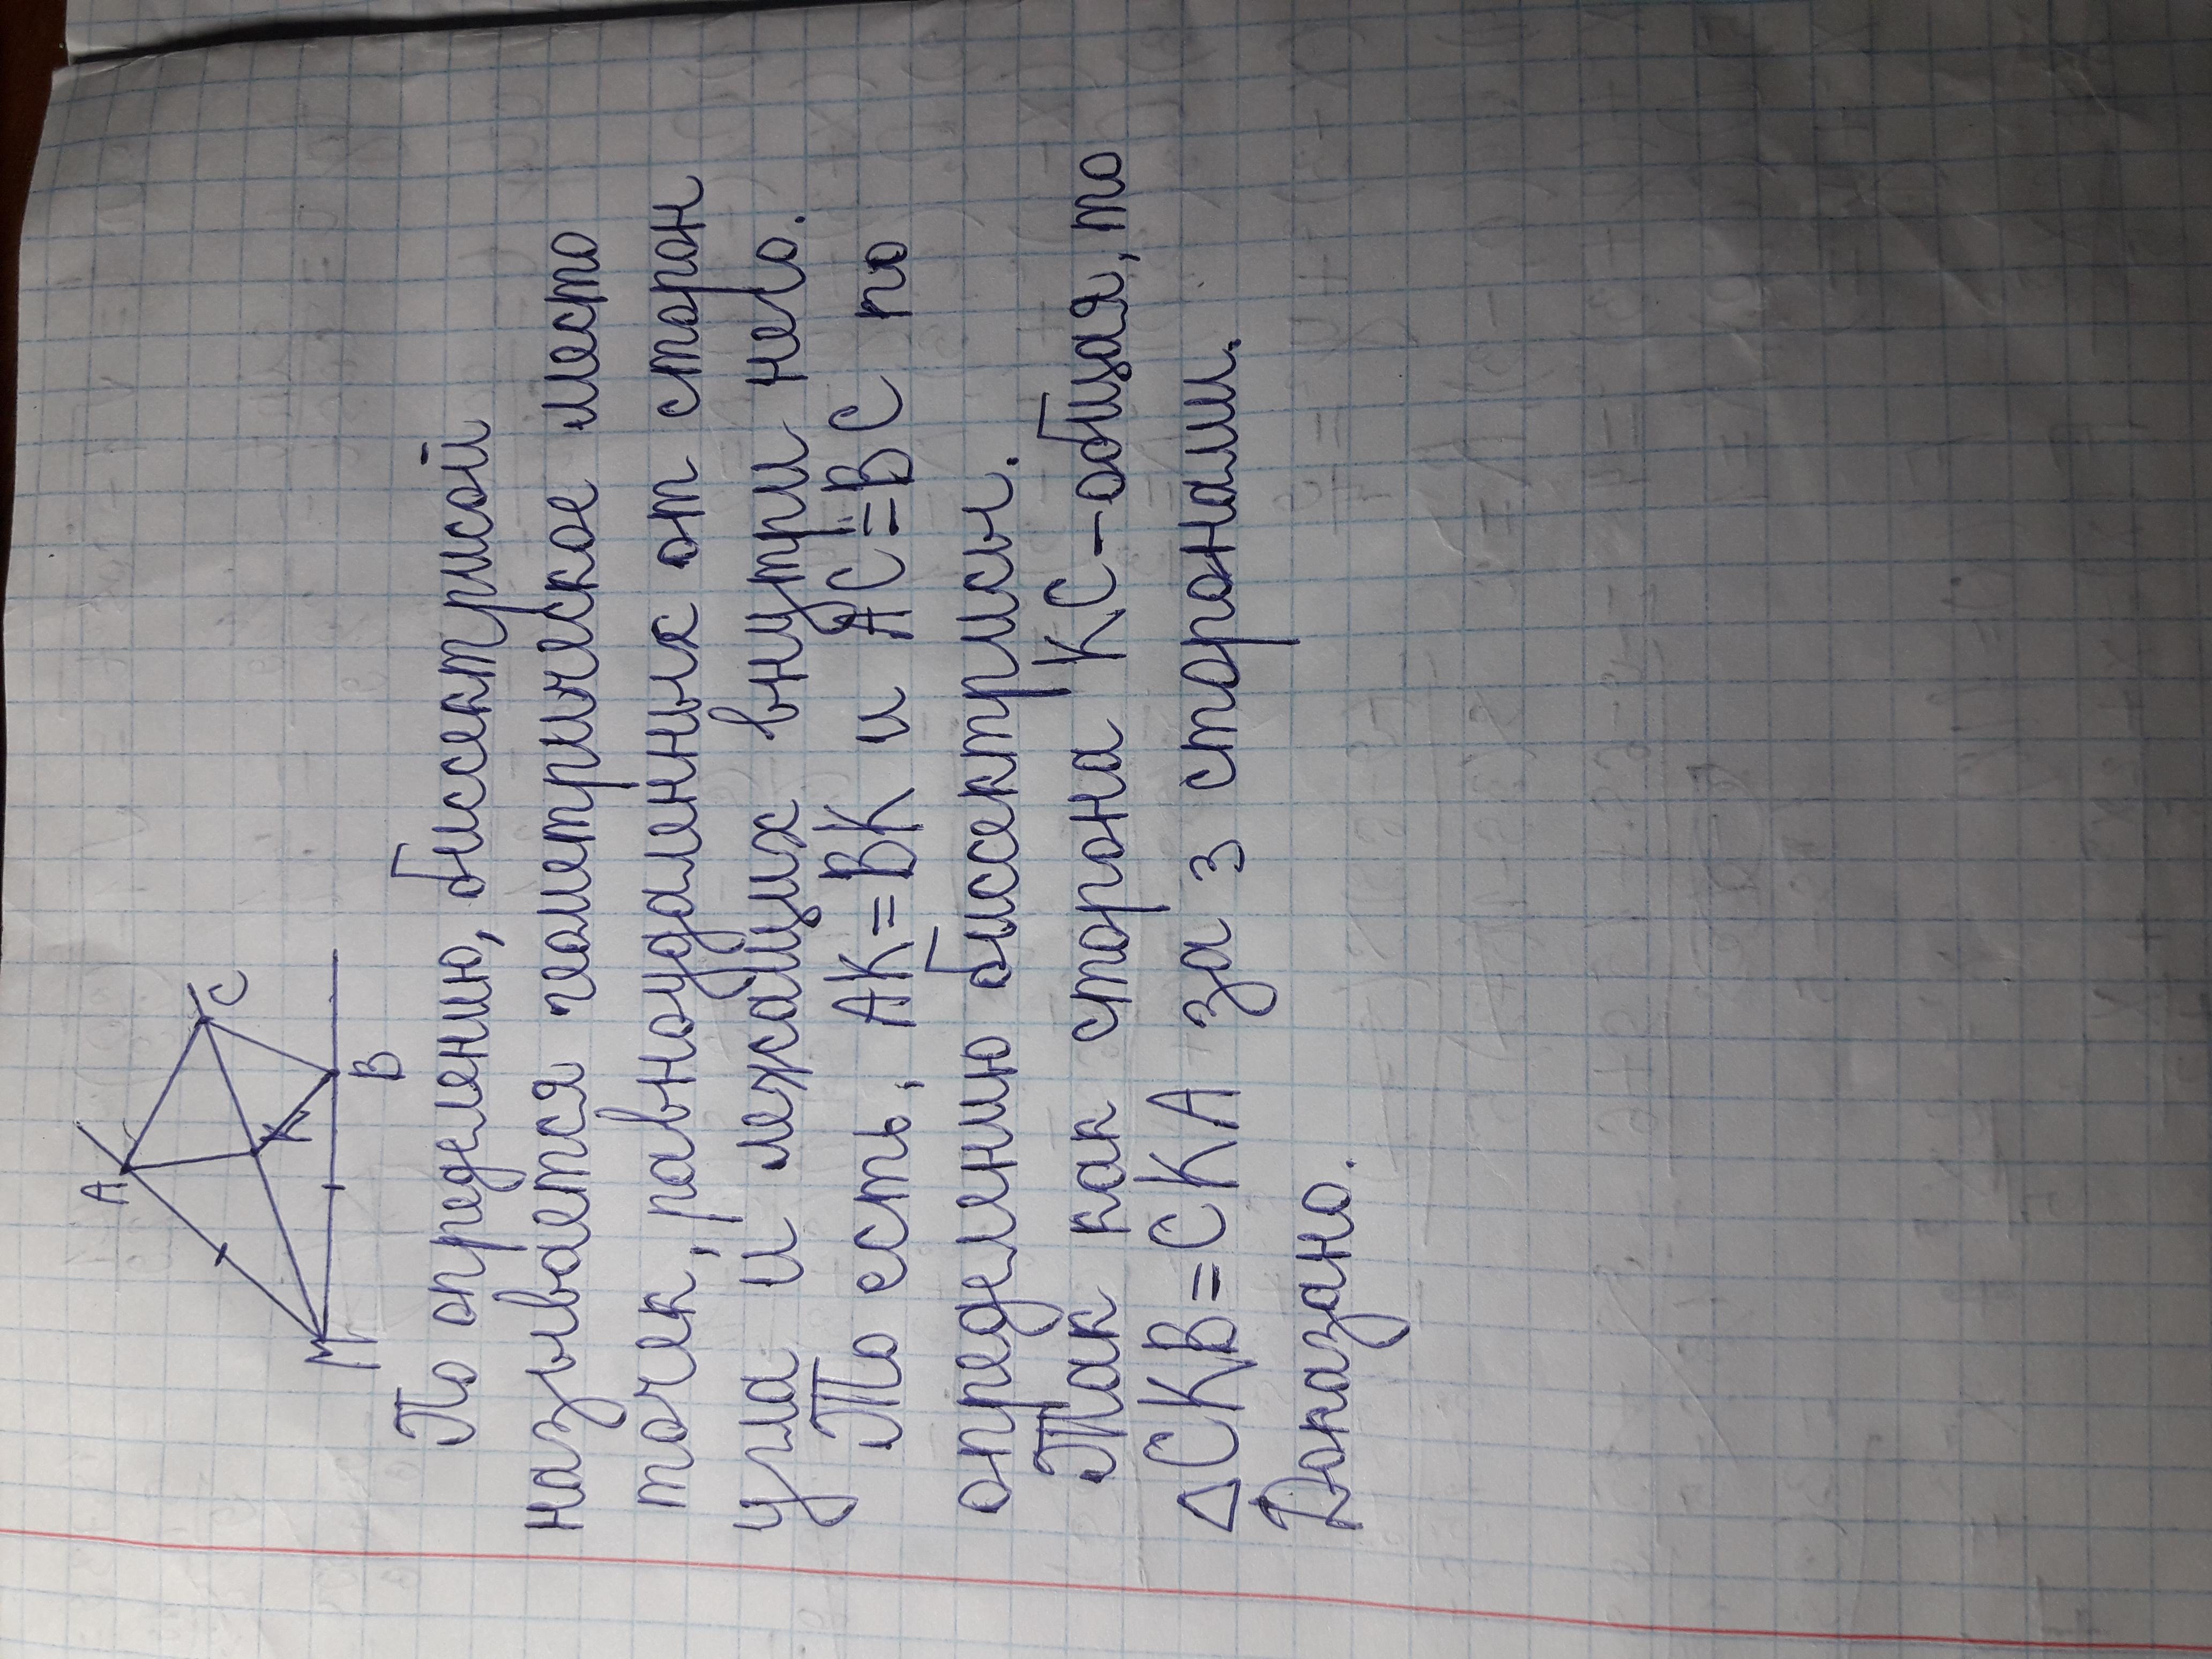 A
C
K
M
B
По определению, биссектрисой
называется геометрическое место
точек, равноудаленных от сторон
угла и лежащих внутри него.
То есть, AK=BK и AC=BC по
определению биссектрисы.
Так как сторона KC-общая, то
△CKB=CKA за 3 сторонами.
Доказано.